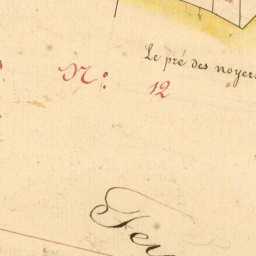 Le pré des noyers
N.º 12